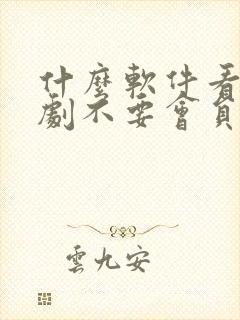 什麼軟件看
劇不要會員
雲九安